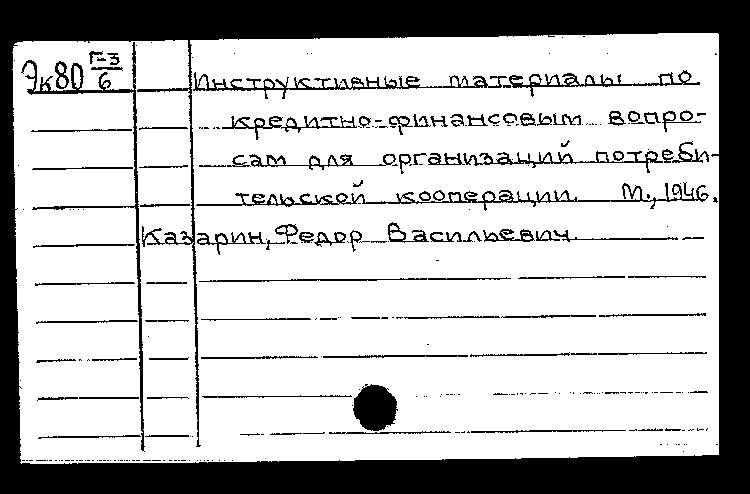 Эк80 Г-3/6
Инструктивные материалы по
кредитно-финансовым вопро-
сам для организаций потреби-
тельской кооперации. М., 1946.
Казарин, Федор Васильевич.